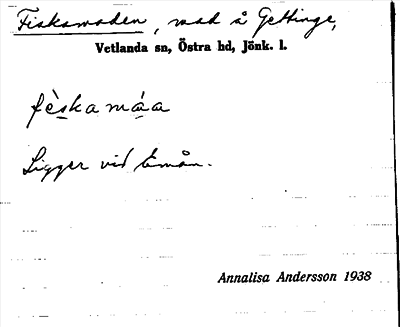 Fiskamaden, mad å Gettinge,
Vetlanda sn, Östra hd, Jönk. l.
fèskamáa
Ligger vid Emån.
Annalisa Andersson 1938